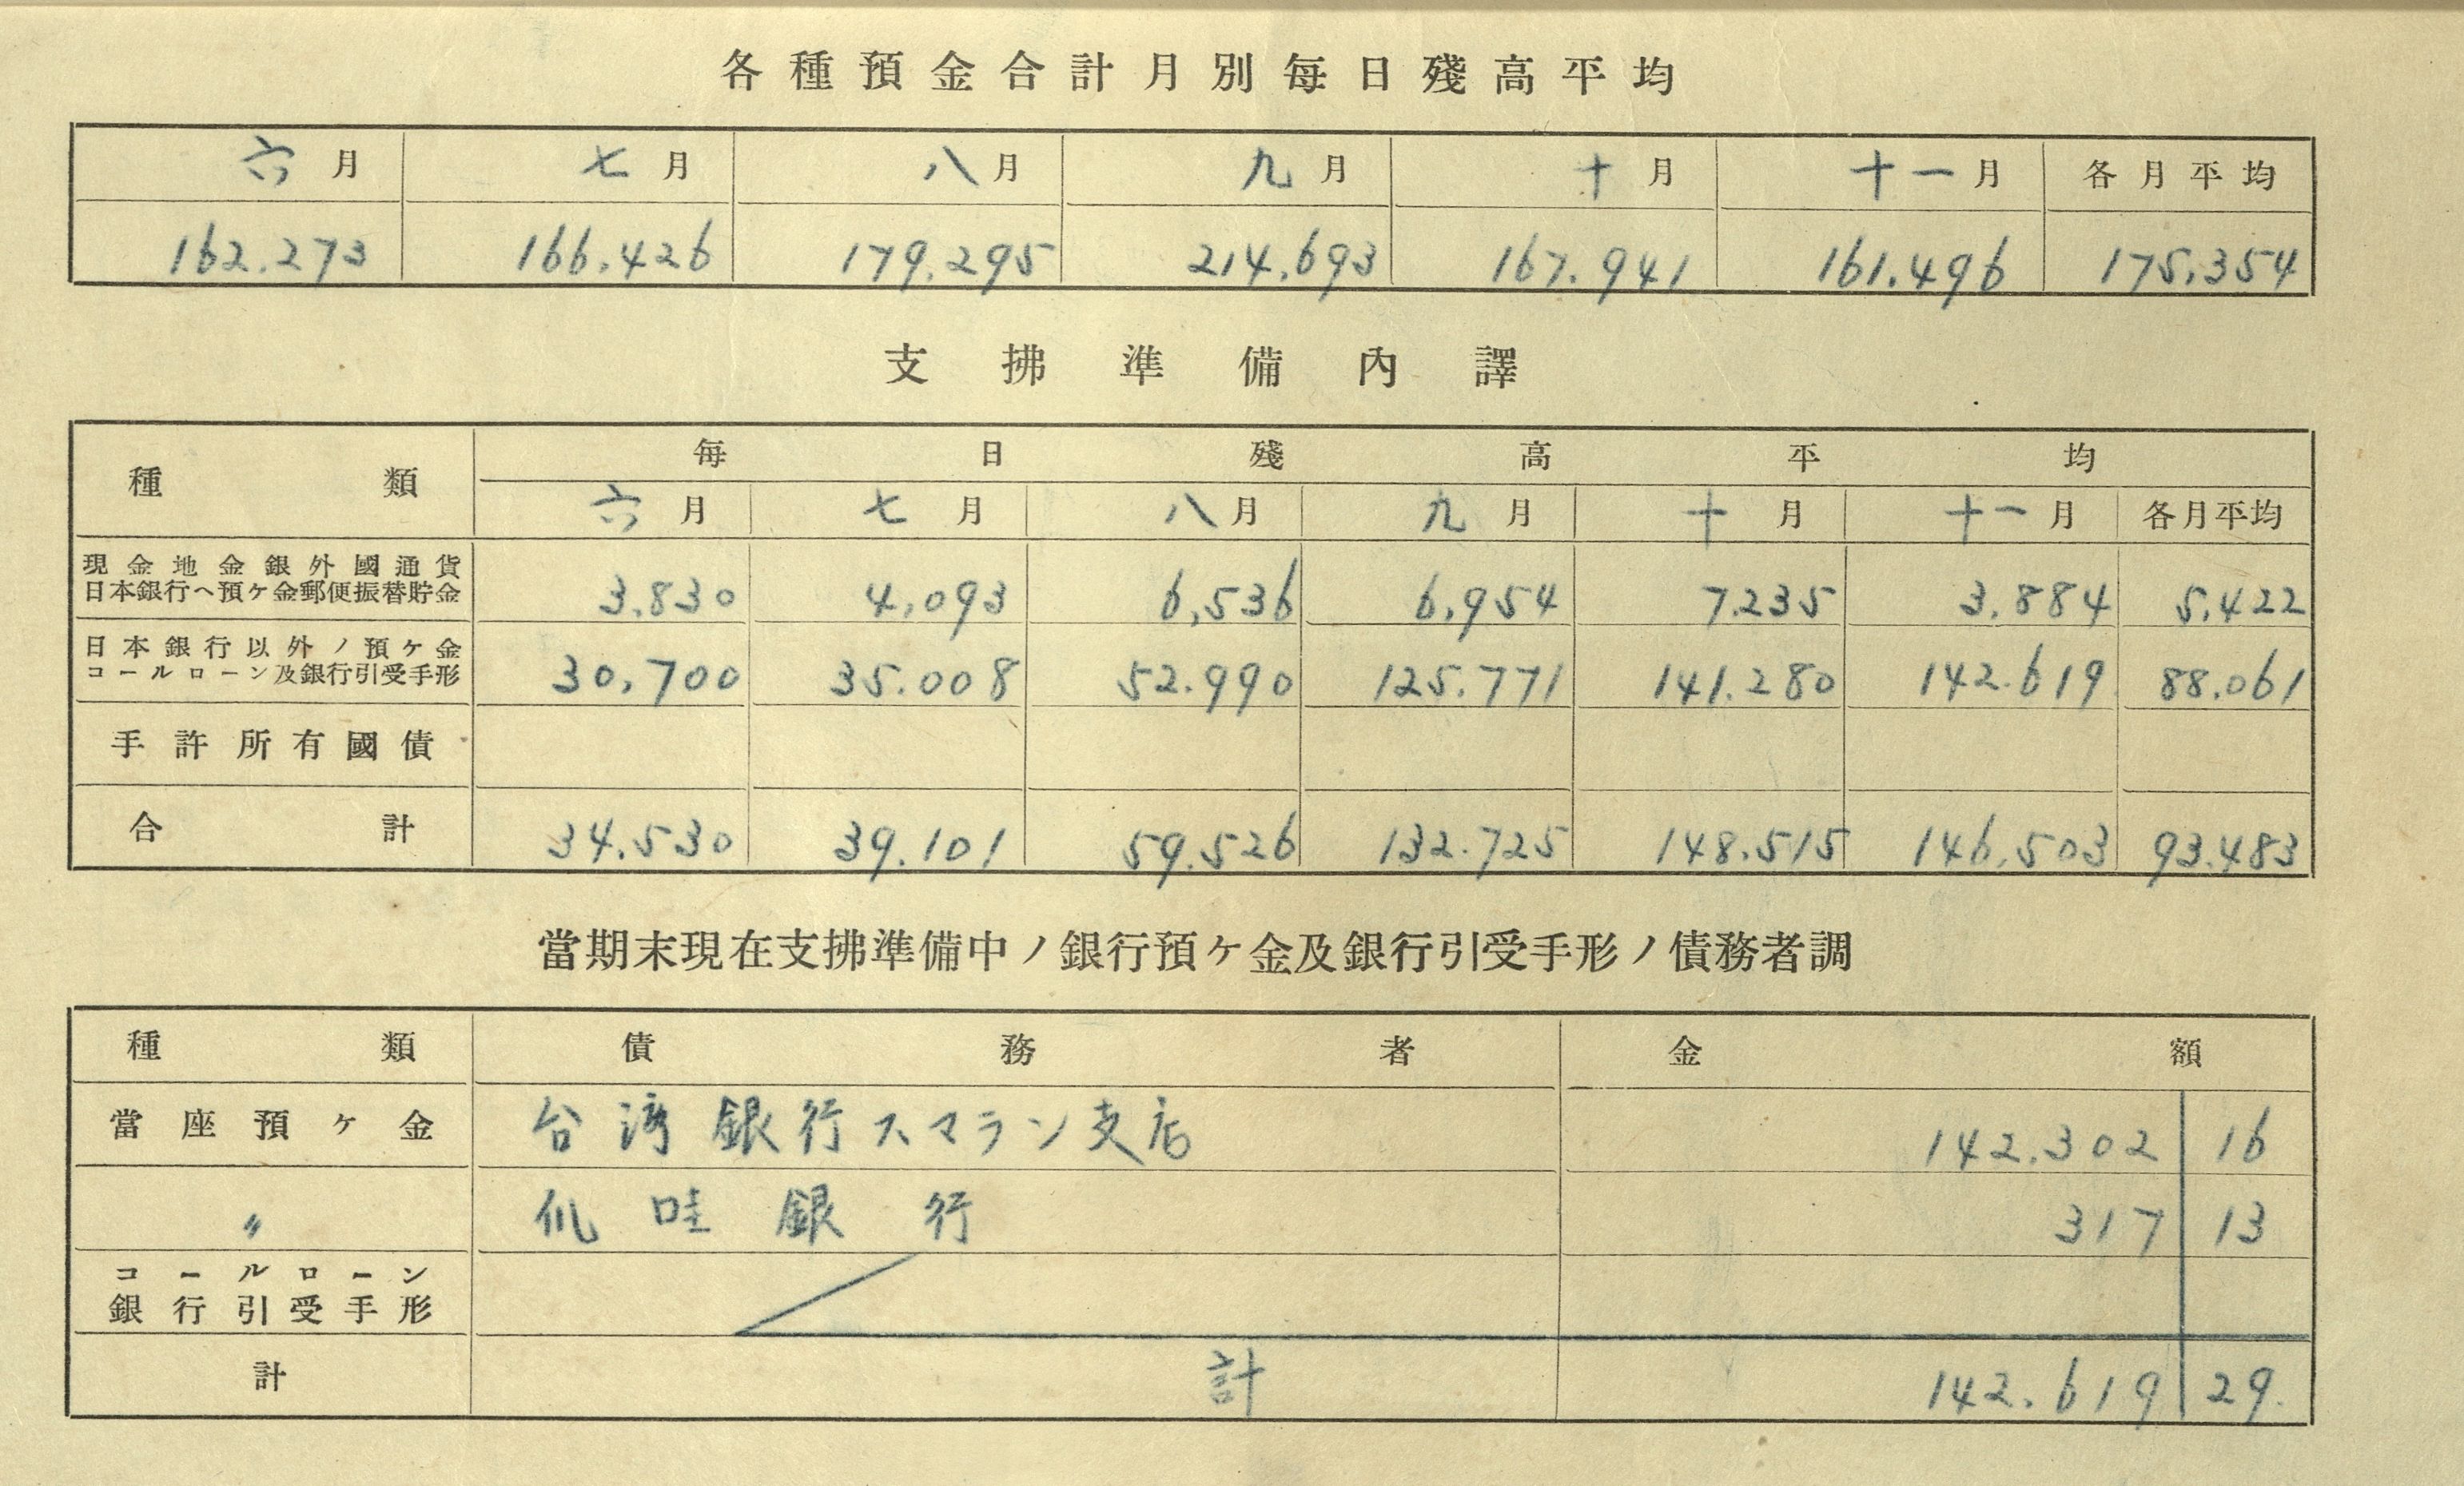 各種預金合計月別每日殘高平均
六月 七月 八月 九月 十月 十一月 各月平均
162.273 166.426 179.295 214.693 167.941 161.496 175.354
支拂準備內譯
種類 每日殘高平均
六月 七月 八月 九月 十月 十一月 各月平均
現金地金銀外國通貨
日本銀行ヘ預ケ金郵便振替貯金 3.830 4.093 6.536 6.954 7.235 3.884 5.422
日本銀行以外ノ預ケ金
コールローン及銀行引受手形 30.700 35.008 52.990 125.771 141.280 142.619 88.061
手許所有國債
合計 34.530 39.101 59.526 132.725 148.515 146.503 93.483
當期末現在支拂準備中ノ銀行預ケ金及銀行引受手形ノ債務者調
種類 債務者 金額
當座預ケ金 台湾銀行スマラン支店 142.302 16
〃 爪哇銀行 317 13
コールローン
銀行引受手形
計 計 142.619 29.